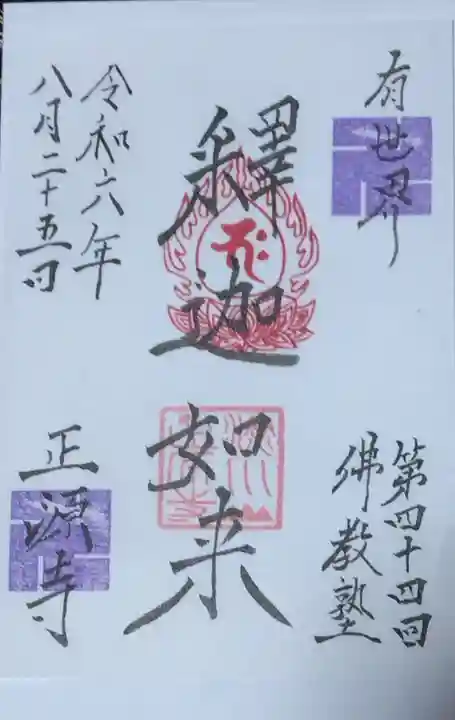 有世界
第四十四回
佛教塾
釋迦
如来
令和六年
八月二十五日
正源寺